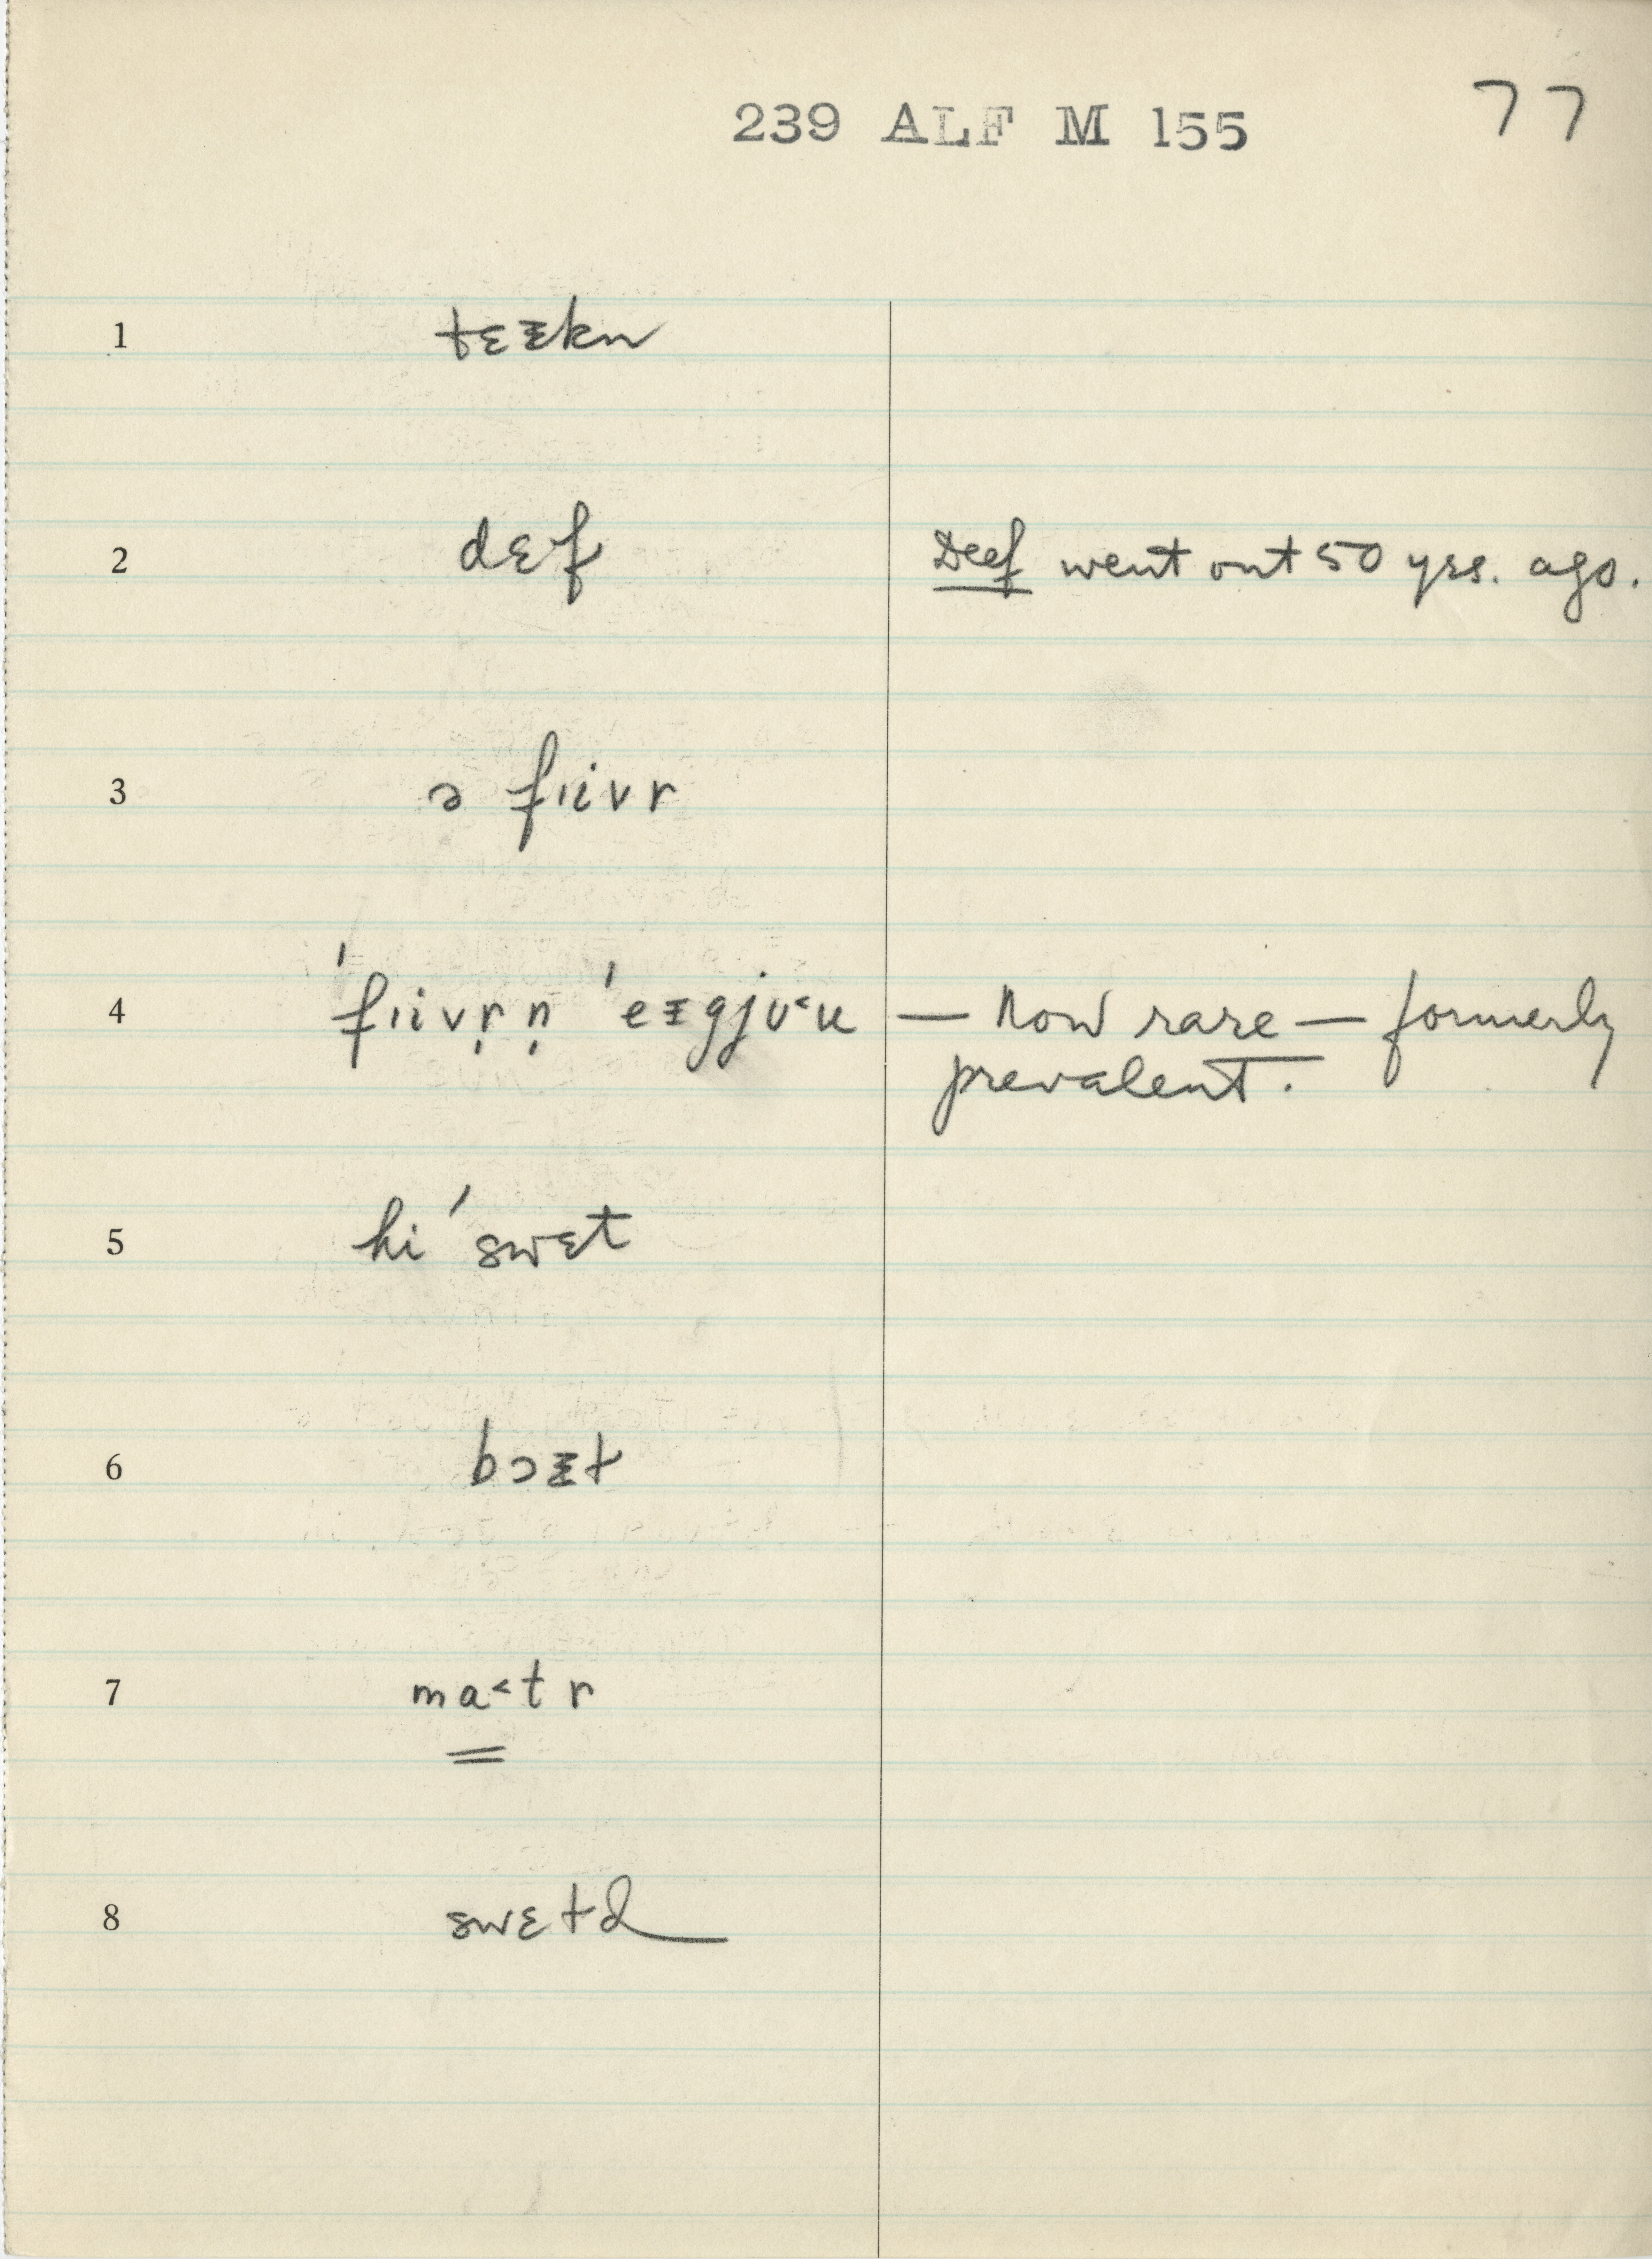 239 ALF M 155 77
1 tɛᵻkn
2 dɛf Deef went out 50 yrs. ago.
3 ə fɪivr
4 ˈfɪivr̩n̩ ˈeᵻgjʊ˂u — Now rare — formerly
prevalent.
5 hi ˈswɛt
6 bɔᵻt
7 ma˂tr
8 swɛtɪd